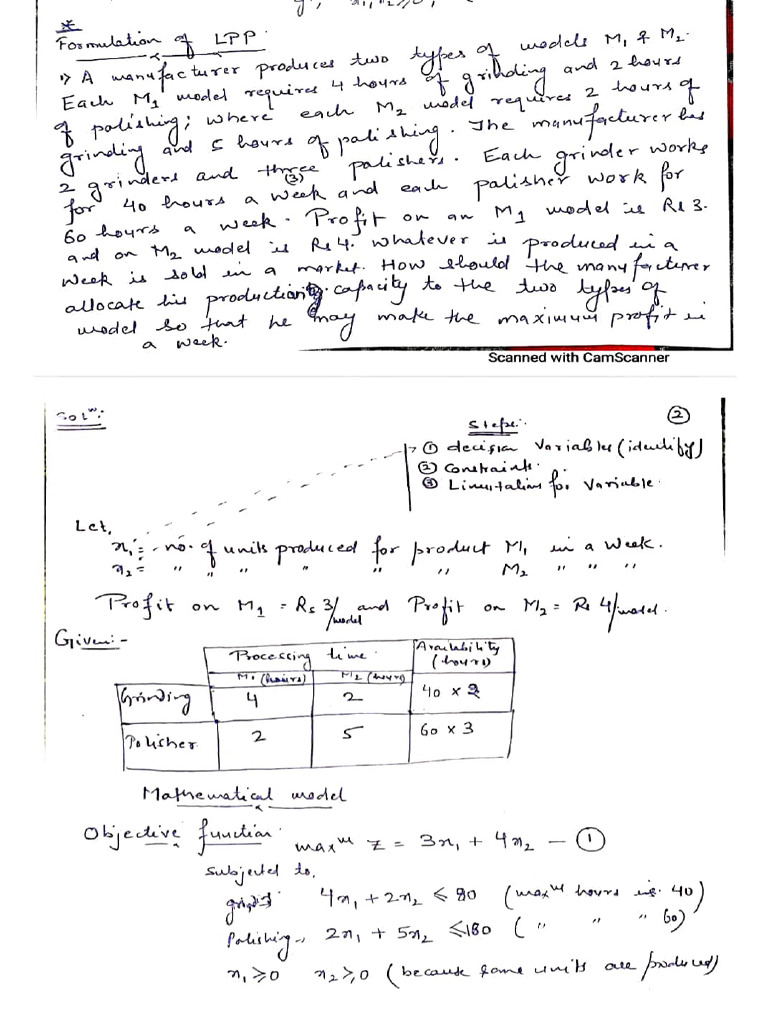 *
Formulation of LPP.
1) A manufacturer produces two types of models M1 & M2.
Each M1 model requires 4 hours of grinding and 2 hours
of polishing; where each M2 model requires 2 hours of
grinding and 5 hours of polishing. The manufacturer has
2 grinders and three (3) polishers. Each grinder works
for 40 hours a week and each polisher work for
60 hours a week. Profit on an M1 model is Rs 3.
and on M2 model is Rs 4. Whatever is produced in a
week is sold in a market. How should the manufacturer
allocate his production capacity to the two types of
model so that he may make the maximum profit in
a week.
Scanned with CamScanner
Solⁿ:
2
Steps:
① decision variables (identify)
② Constraints.
③ Limitation for variable.
Let,
x1 = no. of units produced for product M1 in a week.
x2 = " " " " " " M2 " " "
Profit on M1 = Rs 3/model and Profit on M2 = Rs 4/model.
Given:-
Processing time. Availability (hours)
M1 (hours) M2 (hours)
Grinding 4 2 40 x 2
Polisher 2 5 60 x 3
Mathematical model
Objective function: maxᵐ Z = 3x1 + 4x2 — ①
Subjected to,
4x1 + 2x2 ≤ 80 (maxᵐ hours is 40)
Polishing 2x1 + 5x2 ≤ 180 ( " " " 60)
x1 ≥ 0 x2 ≥ 0 (because some units are produced)